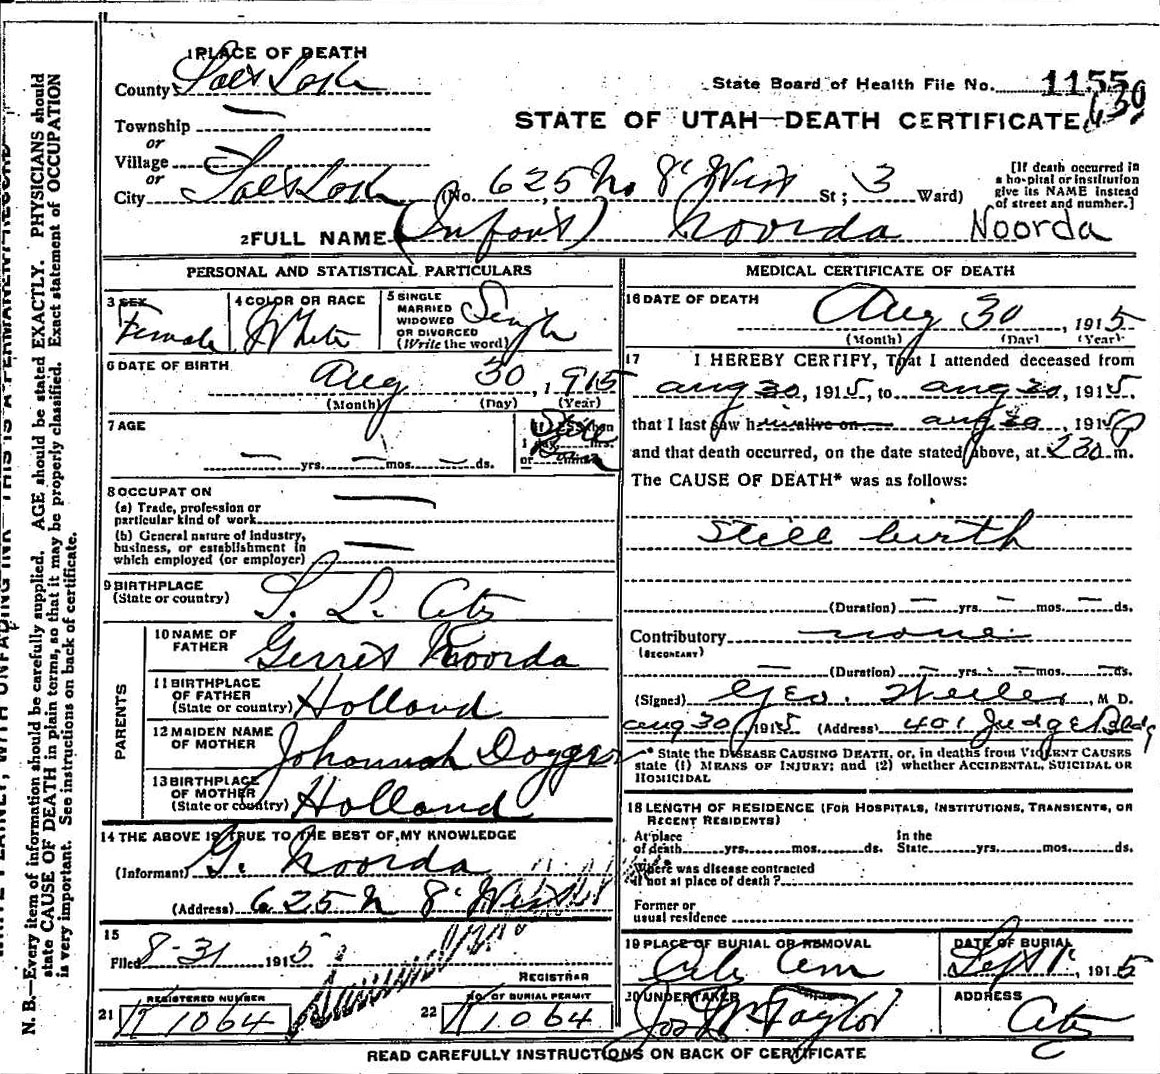 1 PLACE OF DEATH
County Salt Lake
State Board of Health File No. 1155
630
Township —
STATE OF UTAH—DEATH CERTIFICATE
or
Village
or
City Salt Lake (No. 625 No 8' West St; 3 Ward)
[If death occurred in
a hospital or institution
give its NAME instead
of street and number.]
2 FULL NAME (Infant) Noorda Noorda
PERSONAL AND STATISTICAL PARTICULARS
3 SEX
Female
4 COLOR OR RACE
White
5 SINGLE
MARRIED
WIDOWED
OR DIVORCED
(Write the word)
Single
6 DATE OF BIRTH
Aug 30, 1915
(Month) (Day) (Year)
7 AGE
— yrs. — mos. — ds.
If less than
1 day hrs.
or mins.
Still
Born
8 OCCUPATION
(a) Trade, profession or
particular kind of work —
(b) General nature of industry,
business, or establishment in
which employed (or employer) —
9 BIRTHPLACE
(State or country) S. L. City
PARENTS
10 NAME OF
FATHER Gerrit Noorda
11 BIRTHPLACE
OF FATHER
(State or country) Holland
12 MAIDEN NAME
OF MOTHER Johannah Dogger
13 BIRTHPLACE
OF MOTHER
(State or country) Holland
14 THE ABOVE IS TRUE TO THE BEST OF MY KNOWLEDGE
(Informant) G. Noorda
(Address) 625 N 8' West
15
Filed 8-31 1915
REGISTRAR
21 REGISTERED NUMBER
1064
22 NO. OF BURIAL PERMIT
1064
MEDICAL CERTIFICATE OF DEATH
16 DATE OF DEATH
Aug 30, 1915
(Month) (Day) (Year)
17 I HEREBY CERTIFY, That I attended deceased from
Aug 30, 1915, to Aug 30, 1915.
that I last saw h alive on Aug 30, 1915
and that death occurred, on the date stated above, at 230 P m.
The CAUSE OF DEATH* was as follows:
Still birth
(Duration) — yrs. — mos. — ds.
Contributory none
(SECONDARY)
— (Duration) — yrs. — mos. — ds.
(Signed) Geo. , M D.
Aug 30, 1915 (Address) 401 Judge Bldg
* State the DISEASE CAUSING DEATH, or, in deaths from VIOLENT CAUSES
state (1) MEANS OF INJURY; and (2) whether ACCIDENTAL, SUICIDAL OR
HOMICIDAL
18 LENGTH OF RESIDENCE (FOR HOSPITALS, INSTITUTIONS, TRANSIENTS, OR
RECENT RESIDENTS)
At place In the
of death yrs. mos. ds. State yrs. mos. ds.
Where was disease contracted
if not at place of death?
Former or
usual residence
19 PLACE OF BURIAL OR REMOVAL
City Cem
DATE OF BURIAL
Sept 1, 1915
20 UNDERTAKER
Jos Wm Taylor
ADDRESS
City
READ CAREFULLY INSTRUCTIONS ON BACK OF CERTIFICATE
N. B.—Every item of information should be carefully supplied. AGE should be stated EXACTLY. PHYSICIANS should
state CAUSE OF DEATH in plain terms, so that it may be properly classified. Exact statement of OCCUPATION
is very important. See instructions on back of certificate.